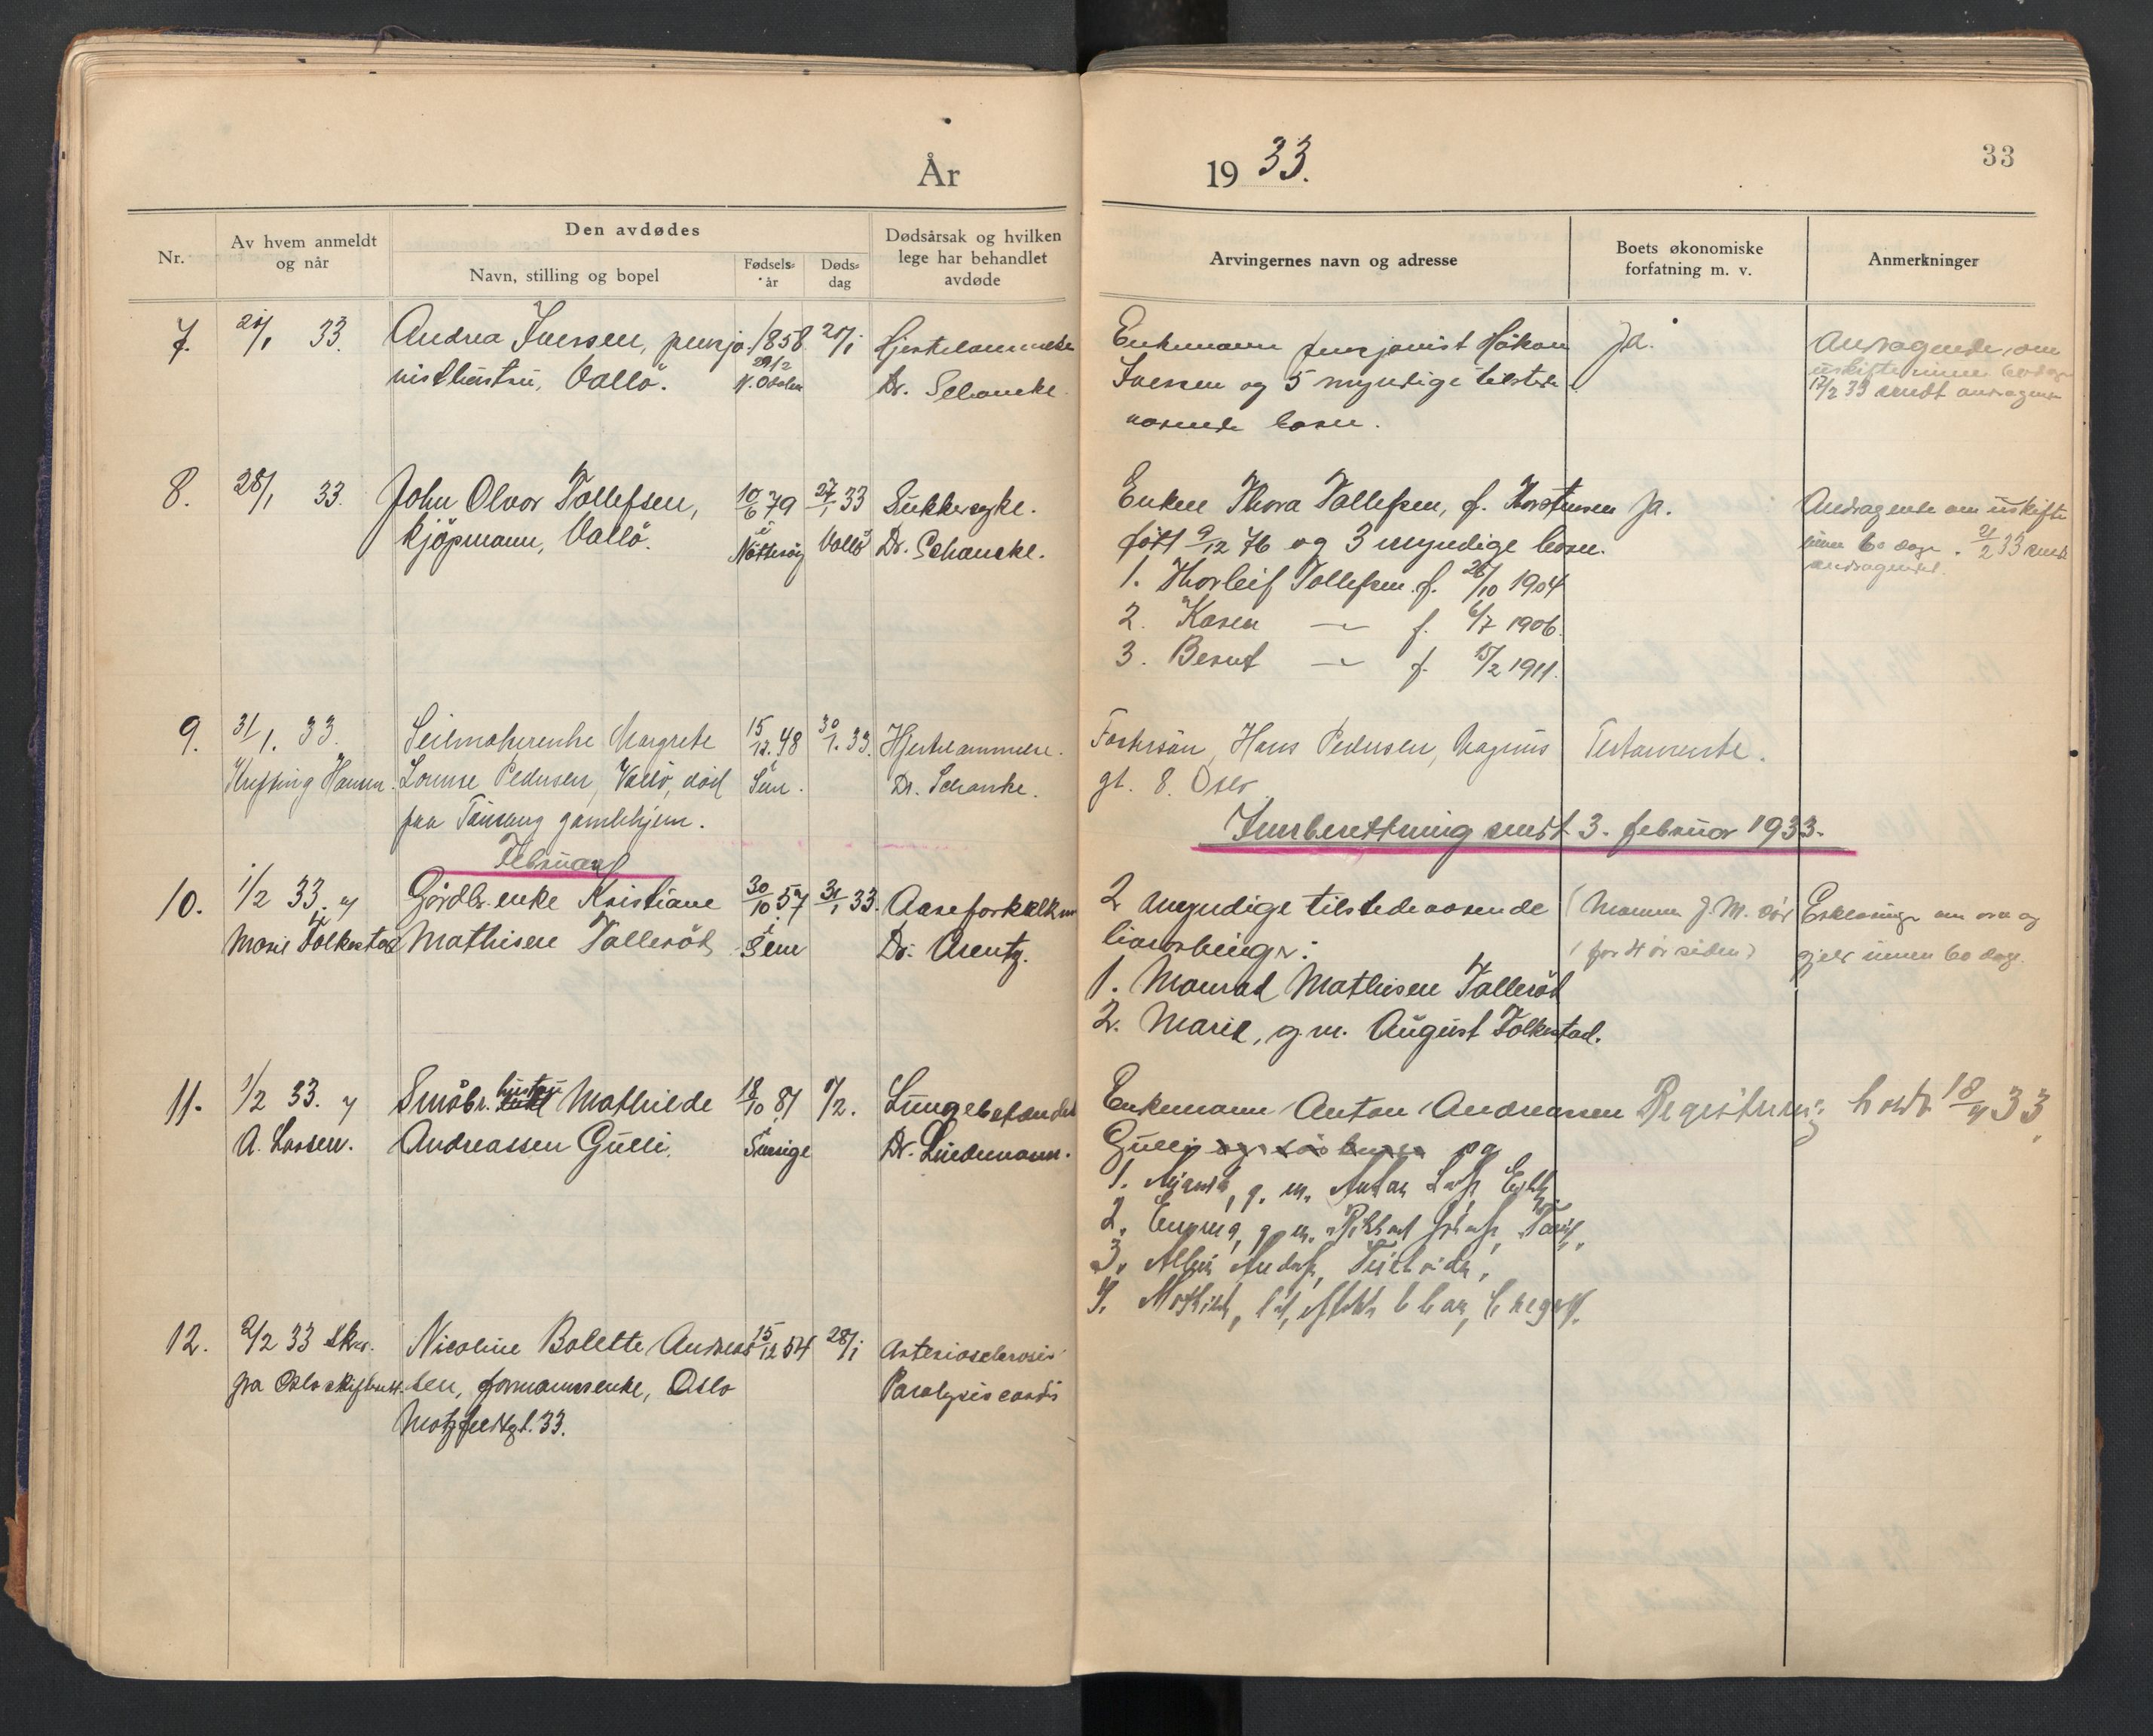 År
19 33.
33
Nr.
Av hvem anmeldt
og når
Den avdødes
Navn, stilling og bopel
Fødsels-
år
Døds-
dag
Dødsårsak og hvilken
lege har behandlet
avdøde
Arvingernes navn og adresse
Boets økonomiske
forfatning m. v.
Anmerkninger
7. 33. Andrea Iversen, pensjo- 1858 Hjertelammelse
nisthustru, Vallö. 29/2 N. Odalen Dr. Schancke.
Enkemann pensjonist Håkon Ja.
Iversen og 5 myndige tilstede
værende barn.
Andragende om
uskifte innen 60 dage
17/2 33 sendt andragende
8. 28/1 33. John Olvar Tollefsen, 10/6 79 27/1 33 Sukkersyke.
kjöpmann, Vallö. i Nötteröy Vallö Dr. Schancke.
Enken Thora Tollefsen, f. Ja.
født 9/12 76 og 3 myndige barn.
1. Thorleif Tollefsen f. 26/10 1904
2. Karen — f. 6/7 1906.
3. Bernt — f. 15/2 1911.
Andragende om uskifte
innen 60 dage. 21/2 33 sendt
andragendet.
9. 31/1. 33. Seilmakerenke Margrete 15/12. 48 30/1. 33. Hjertelammelse.
Hansen. Lovise Pedersen, Vallö, död i Sem. Dr. Schanke.
paa Tönsberg gamlehjem.
Fostersön, Hans Pedersen, Magnus Testamente.
gt. 8. Oslo
Innberettning sendt 3. februar 1933.
Februar
10. 1/2 33. Gårdbr. enke Kristiane 30/10 57 31/1 33. Aareforkalkn
Marie Folkestad Mathisen Talleröt i Sem Dr. Arentz.
2 myndige tilstedeværende (Mannen J. M. dör
livsarvinger: (for 4 år siden)
1. Monrad Mathisen Talleröt
2. Marie, g.m. August Folkestad.
Erklæring om arv og
gjeld innen 60 dage.
11. 1/2 33. Småbr. hustru Mathilde 18/10 81 1/2. Lungebetændelse
A. Larsen. Andreassen Gulli. i Sverige Dr. Lindemann.
Enkemann Anton Andreassen Registrering holdt 18/4 33.
Gulli og
1. g. m. Anton
2. g. m.
3.
4.
12. 2/2 33 skr. Nicoline Bolette Andreas 15/12 54 28/1 Arteriosclerosis
fra Oslo skifterett. sen, formannsenke, Oslo Paralysis cordis
Motzfeldtgt. 33.